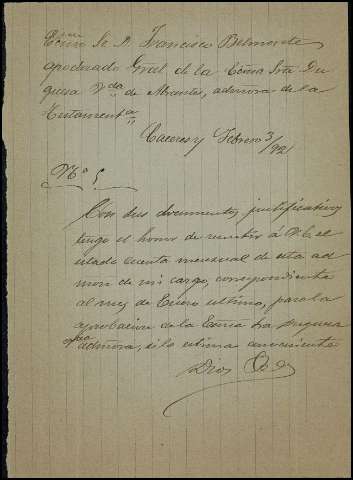 Excmo Sr. D. Francisco Belmonte
apoderado Gral de la Excma Sra Du
quesa Vda de Abrantes, admora de la
Testamentª
Caceres y Febrero 3/92
Nº 5
Con dos documentos justificativos
tengo el honor de remitir á V.E. el
estado cuenta mensual de esta ad
mon de mi cargo, correspondiente
al mes de Enero ultimo, para la
aprobacion de la Excma Sra Duquesa
admora, si lo estima conveniente
Dios